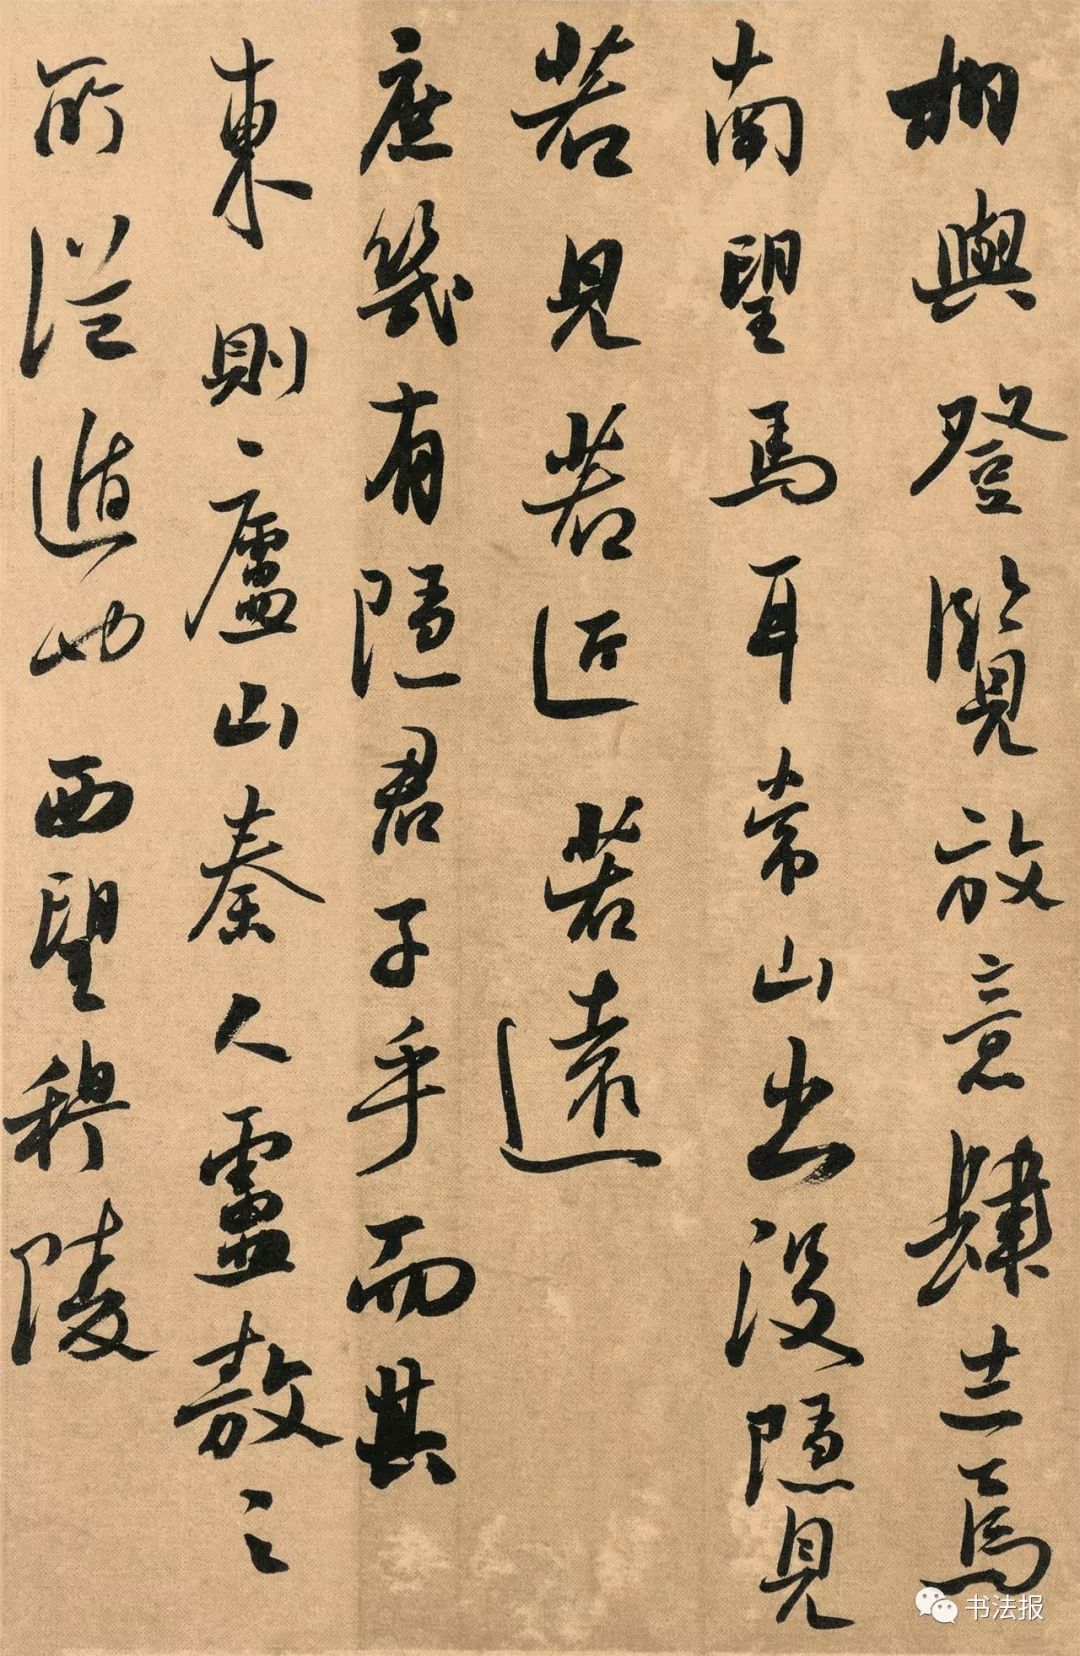 相與登覽放意肆志焉
南望馬耳常山出沒隱見
若見若近若遠
庶幾有隱君子乎而其
東則廬山秦人盧敖之
所從遁也西望穆陵
书法报